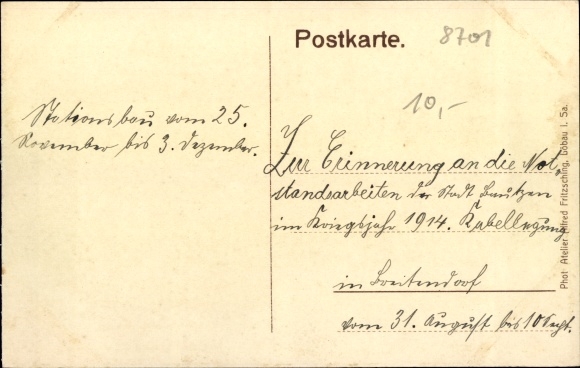 Postkarte.
8701
10,-
Stationsbau vom 25.
November bis 3. Dezember.
Zur Erinnerung an die Not-
standsarbeiten der Stadt Bautzen
im Kriegsjahr 1914. Kabellegung
in Breitendorf
vom 31. August bis 10 Sept.
Phot. Atelier Alfred Fritzsching, Löbau i. Sa.